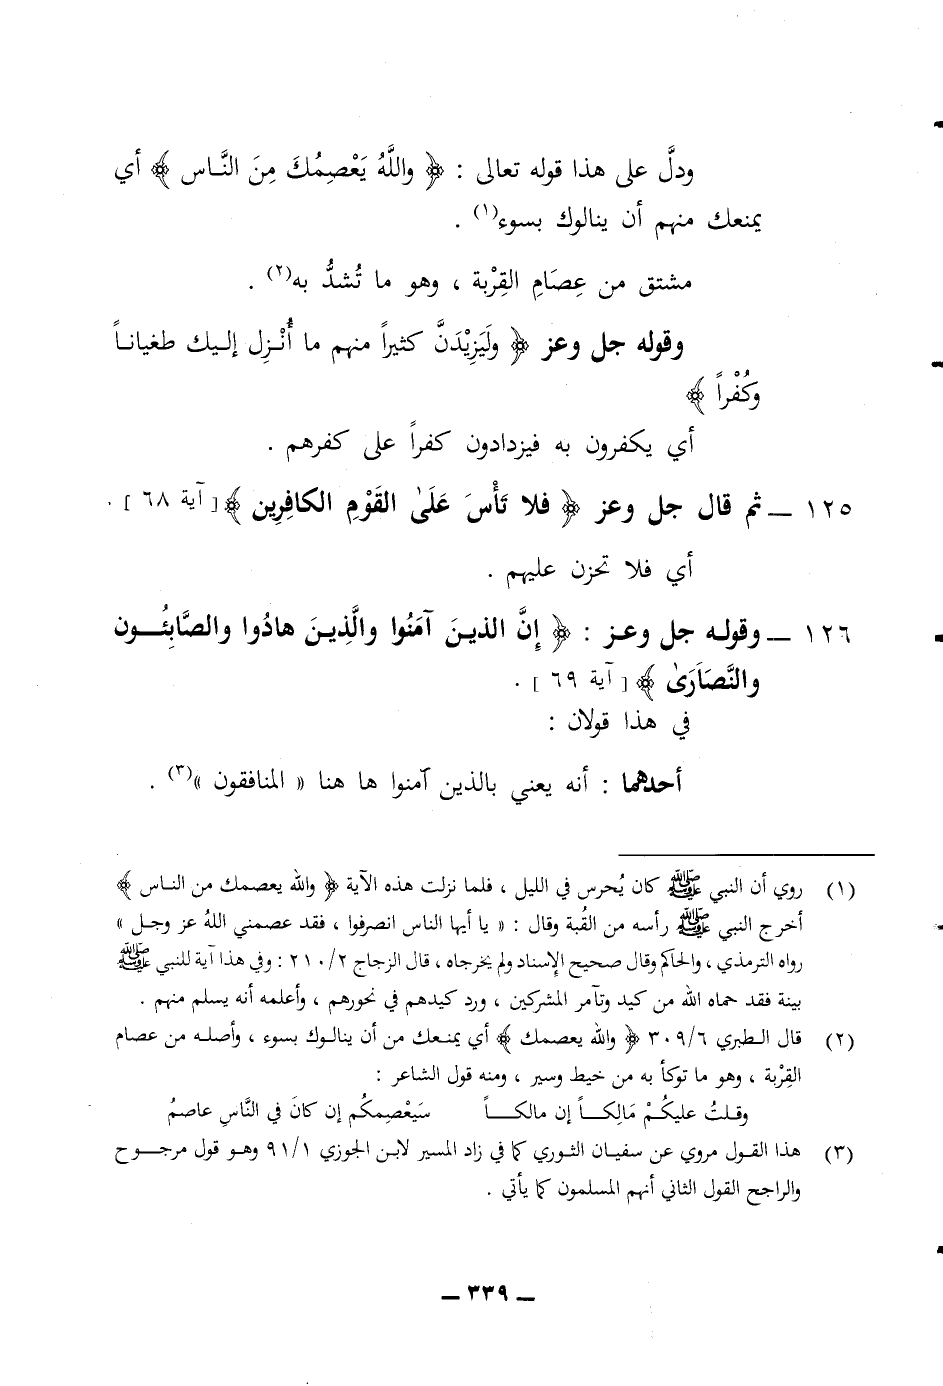 ودلَّ على هذا قوله تعالى : ﴿ واللَّهُ يَعْصِمُكَ مِنَ النَّاس ﴾ أي
يمنعك منهم أن ينالوك بسوء(١) .
مشتق من عِصَامِ القِرْبة ، وهو ما تُشدُّ به(٢) .
وقوله جل وعز ﴿ ولَيَزِيْدَنَّ كثيراً منهم ما أُنْزِل إليك طغياناً
وكُفْراً ﴾
أي يكفرون به فيزدادون كفراً على كفرهم .
١٢٥ ــ ثم قال جل وعز ﴿ فلا تَأْسَ عَلَىٰ القَوْمِ الكافِرِين ﴾ [ آية ٦٨ ] .
أي فلا تحزن عليهم .
١٢٦ ــ وقوله جل وعز : ﴿ إنَّ الذينَ آمَنُوا والَّذِينَ هادُوا والصَّابِئُون
والنَّصَارَىٰ ﴾ [ آية ٦٩ ] .
في هذا قولان :
أحدهما : أنه يعني بالذين آمنوا ها هنا « المنافقون »(٣) .
(١) روي أن النبي ﷺ كان يُحرس في الليل ، فلما نزلت هذه الآية ﴿ والله يعصمك من الناس ﴾
أخرج النبي ﷺ رأسه من القُبة وقال : « يا أيها الناس انصرفوا ، فقد عصمني اللهُ عز وجل »
رواه الترمذي ، والحاكم وقال صحيح الإسناد ولم يخرجاه ، قال الزجاج ٢١٠/٢ : وفي هذا آية للنبي ﷺ
بينة فقد حماه الله من كيد وتآمر المشركين ، ورد كيدهم في نحورهم ، وأعلمه أنه يسلم منهم .
(٢) قال الطبري ٣٠٩/٦ ﴿ والله يعصمك ﴾ أي يمنعك من أن ينالوك بسوء ، وأصله من عصام
القِرْبة ، وهو ما توكأ به من خيط وسير ، ومنه قول الشاعر :
وقلتُ عليكُمْ مَالِكاً إن مالكاً سَيَعْصِمكُم إن كانَ في النَّاسِ عاصمُ
(٣) هذا القول مروي عن سفيان الثوري كما في زاد المسير لابن الجوزي ٩١/١ وهو قول مرجوح
والراجح القول الثاني أنهم المسلمون كما يأتي .
ــ ٣٣٩ ــ